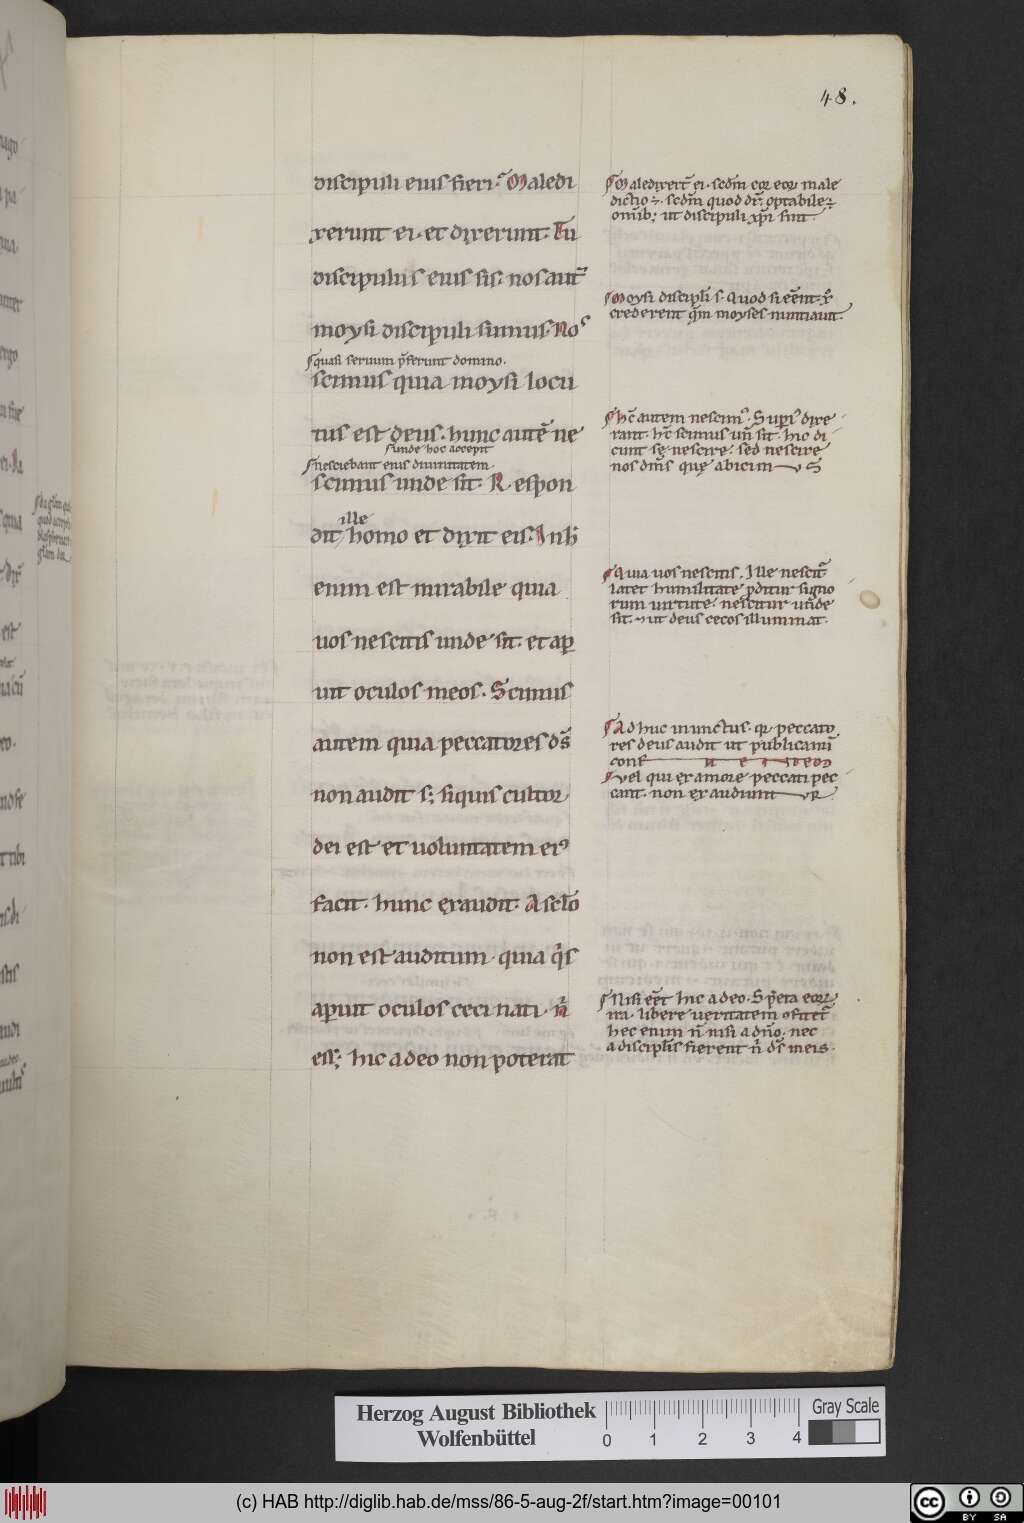 48.
discipuli eius fieri. Maledi
xerunt ei. et dixerunt. Tu
discipulus eius sis. nos aut̃
moysi discipuli sumus. Nos
quasi seruum p̃ferunt domino.
scimus quia moysi locu
tus est deus. hunc autē ne
unde hoc accepit
nesciebant eius diuinitatem.
scimus unde sit. Respon
ille
dit homo et dixit eis. In h̄
enim est mirabile quia
uos nescitis unde sit. et ap̱
uit oculos meos. Scimus
autem quia peccatores d̄s
non audit s; siquis cultor
dei est et uoluntatem ei⁹
facit. hunc exaudit. A sclō
non est auditum. quia q̄s
aperuit oculos ceci nati. n̄
eſſ; hic a deo non poterat
Maledixert̄ ei. scd̄m cor eoꝝ male
dictio ÷. scd̄m quod dr̄. optabile ÷
omīb; ut discipuli xp̄i sint.
Moysi discipl̄i s. Quod si eēnt. x̄
crederent q̄m moyses nuntiauit.
h̄c autem nescim⁹. Supi⁹ dixe
rant. h̄c scimus uñ sit. hic di
cunt sę nescire. sed nescire
nos dm̄s quę abicim S
Quia uos nescitis. Ille nescit̄
latet humilitate p̱ditur signo
rum uirtute. nescitur uñde
sit. ut deus cecos illuminat.
Ad huc inunctus. qr̄ peccato
res deus audit ut publicanū
conf
Vel qui ex amore peccati pec
cant. non exaudiunt R
Nisi eēt hic a deo. Sp̄eta eoꝝ
ira. libere ueritatem ɔfitet̄
hec enim n̄ nisi a dn̄o. nec
a discipl̄is fierent n̄ d̄s in eis.
Herzog August Bibliothek
Wolfenbüttel
0 1 2 3 4
Gray Scale
(c) HAB http://diglib.hab.de/mss/86-5-aug-2f/start.htm?image=00101
cc BY SA